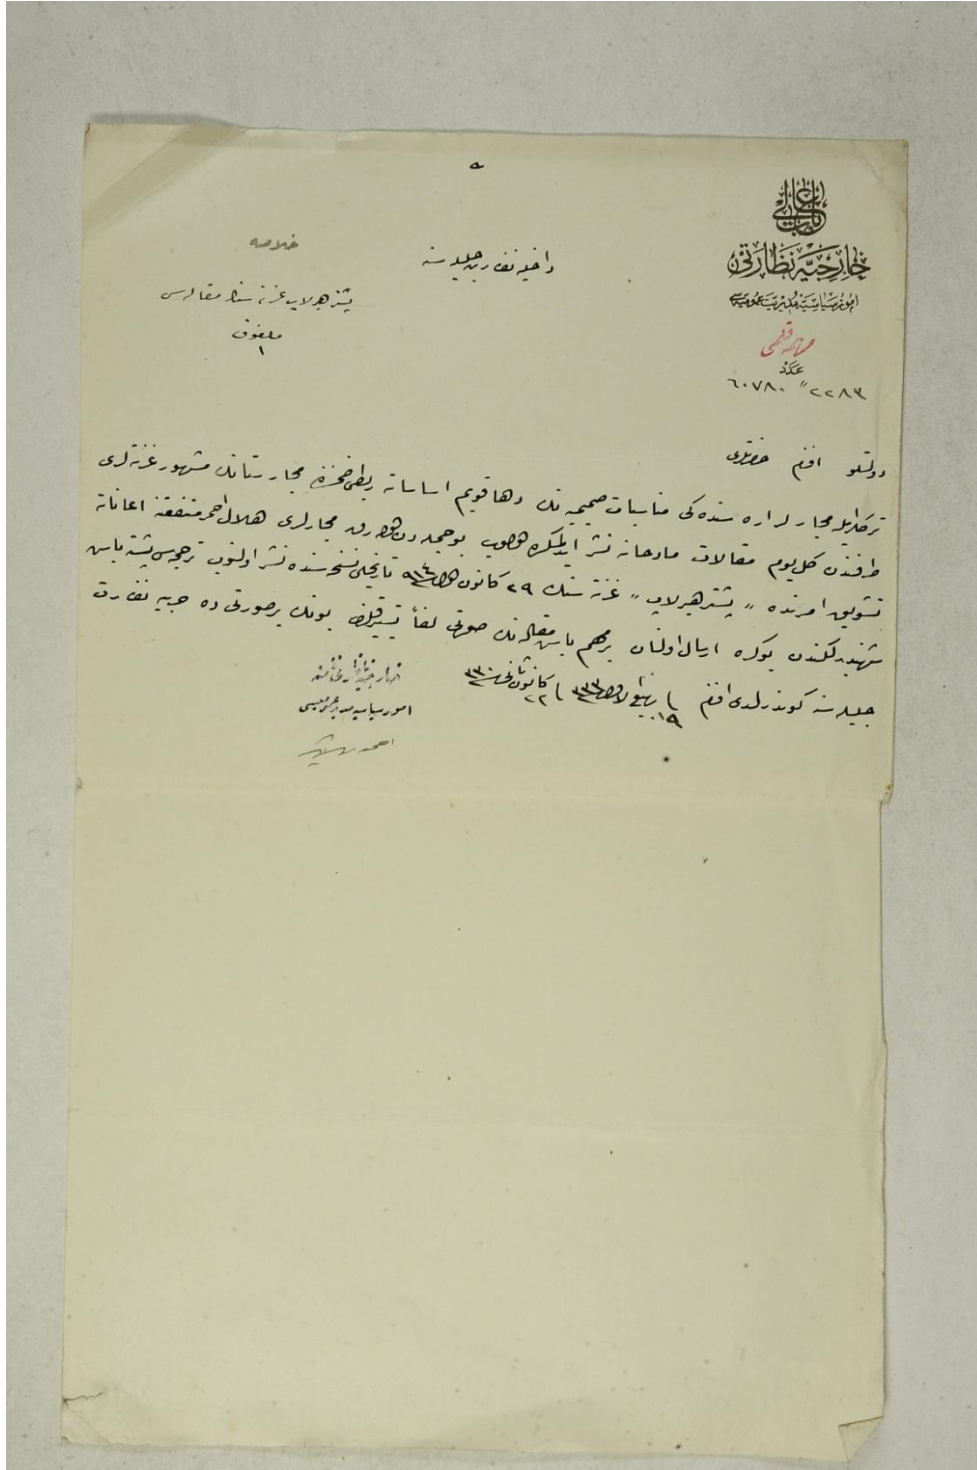 باب عالی
خارجیه نظارتی
امور سیاسیه مدیریت عمومیه‌سی
عدد
٢٢٨٣ ٦٠٧٨٠
داخلیه نظارت جلیله‌سنه
خلاصه
پشتر هیرلاپ غزته‌سنك مقاله‌سی
ملفوف
١
دولتلو افندم حضرتلری
تركلرله مجارلر اره‌سنده‌كی مناسبات صمیمیه‌نك دها قویم اساساته ربطی ضمننده مجارستانك مشهور غزته‌لری
طرفندن كل یوم مقالات مادحانه نشر ایدلمكده اولوب بوجمله‌دن اوله‌رق مجارلری هلال احمر منفعتنه اعاناته
تشویق امرنده « پشتر هیرلاپ » غزته‌سنك ٢٩ كانون اول ٩١٤ تاریخلی نسخه‌سنده نشر اولنوب ترجمه‌سی پشته باش
شهبندرلكندن بوكره ارسال اولنان مهم باش مقاله‌نك صورتی لفاً تسییر قلنمش بونك بر صورتی ده حربیه نظارت
جلیله‌سنه كوندرلدی افندم فی ١٩ ربیع الاول ٣٣٣ فی ٢٢ كانون ثانی ٣٣٠
خارجیه ناظری نامنه
امور سیاسیه مدیر عمومیسی